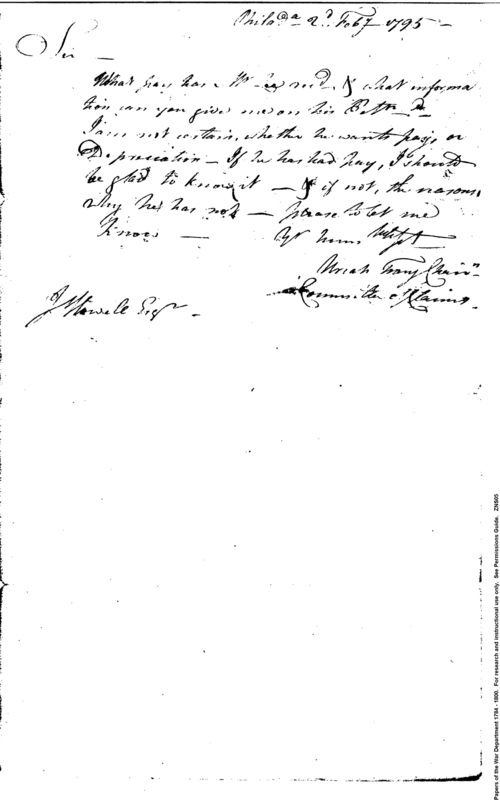 Philada 2d Feby 1795 –
Sir –
What pay has Mr Lee recd. & what informa
tion can you give me on his Petn. –
I am not certain, whether he wants pay, or
Depreciation – If he has had pay, I should
be glad to know it – & if not, the reasons
why he has not – please to let me
Know –
Yr hum Servt
Uriah Tracy Chairn
Committee of Claims –
J Howell Esqr –
Papers of the War Department 1784 - 1800. For research and instructional use only. See Permissions Guide. ZNS05